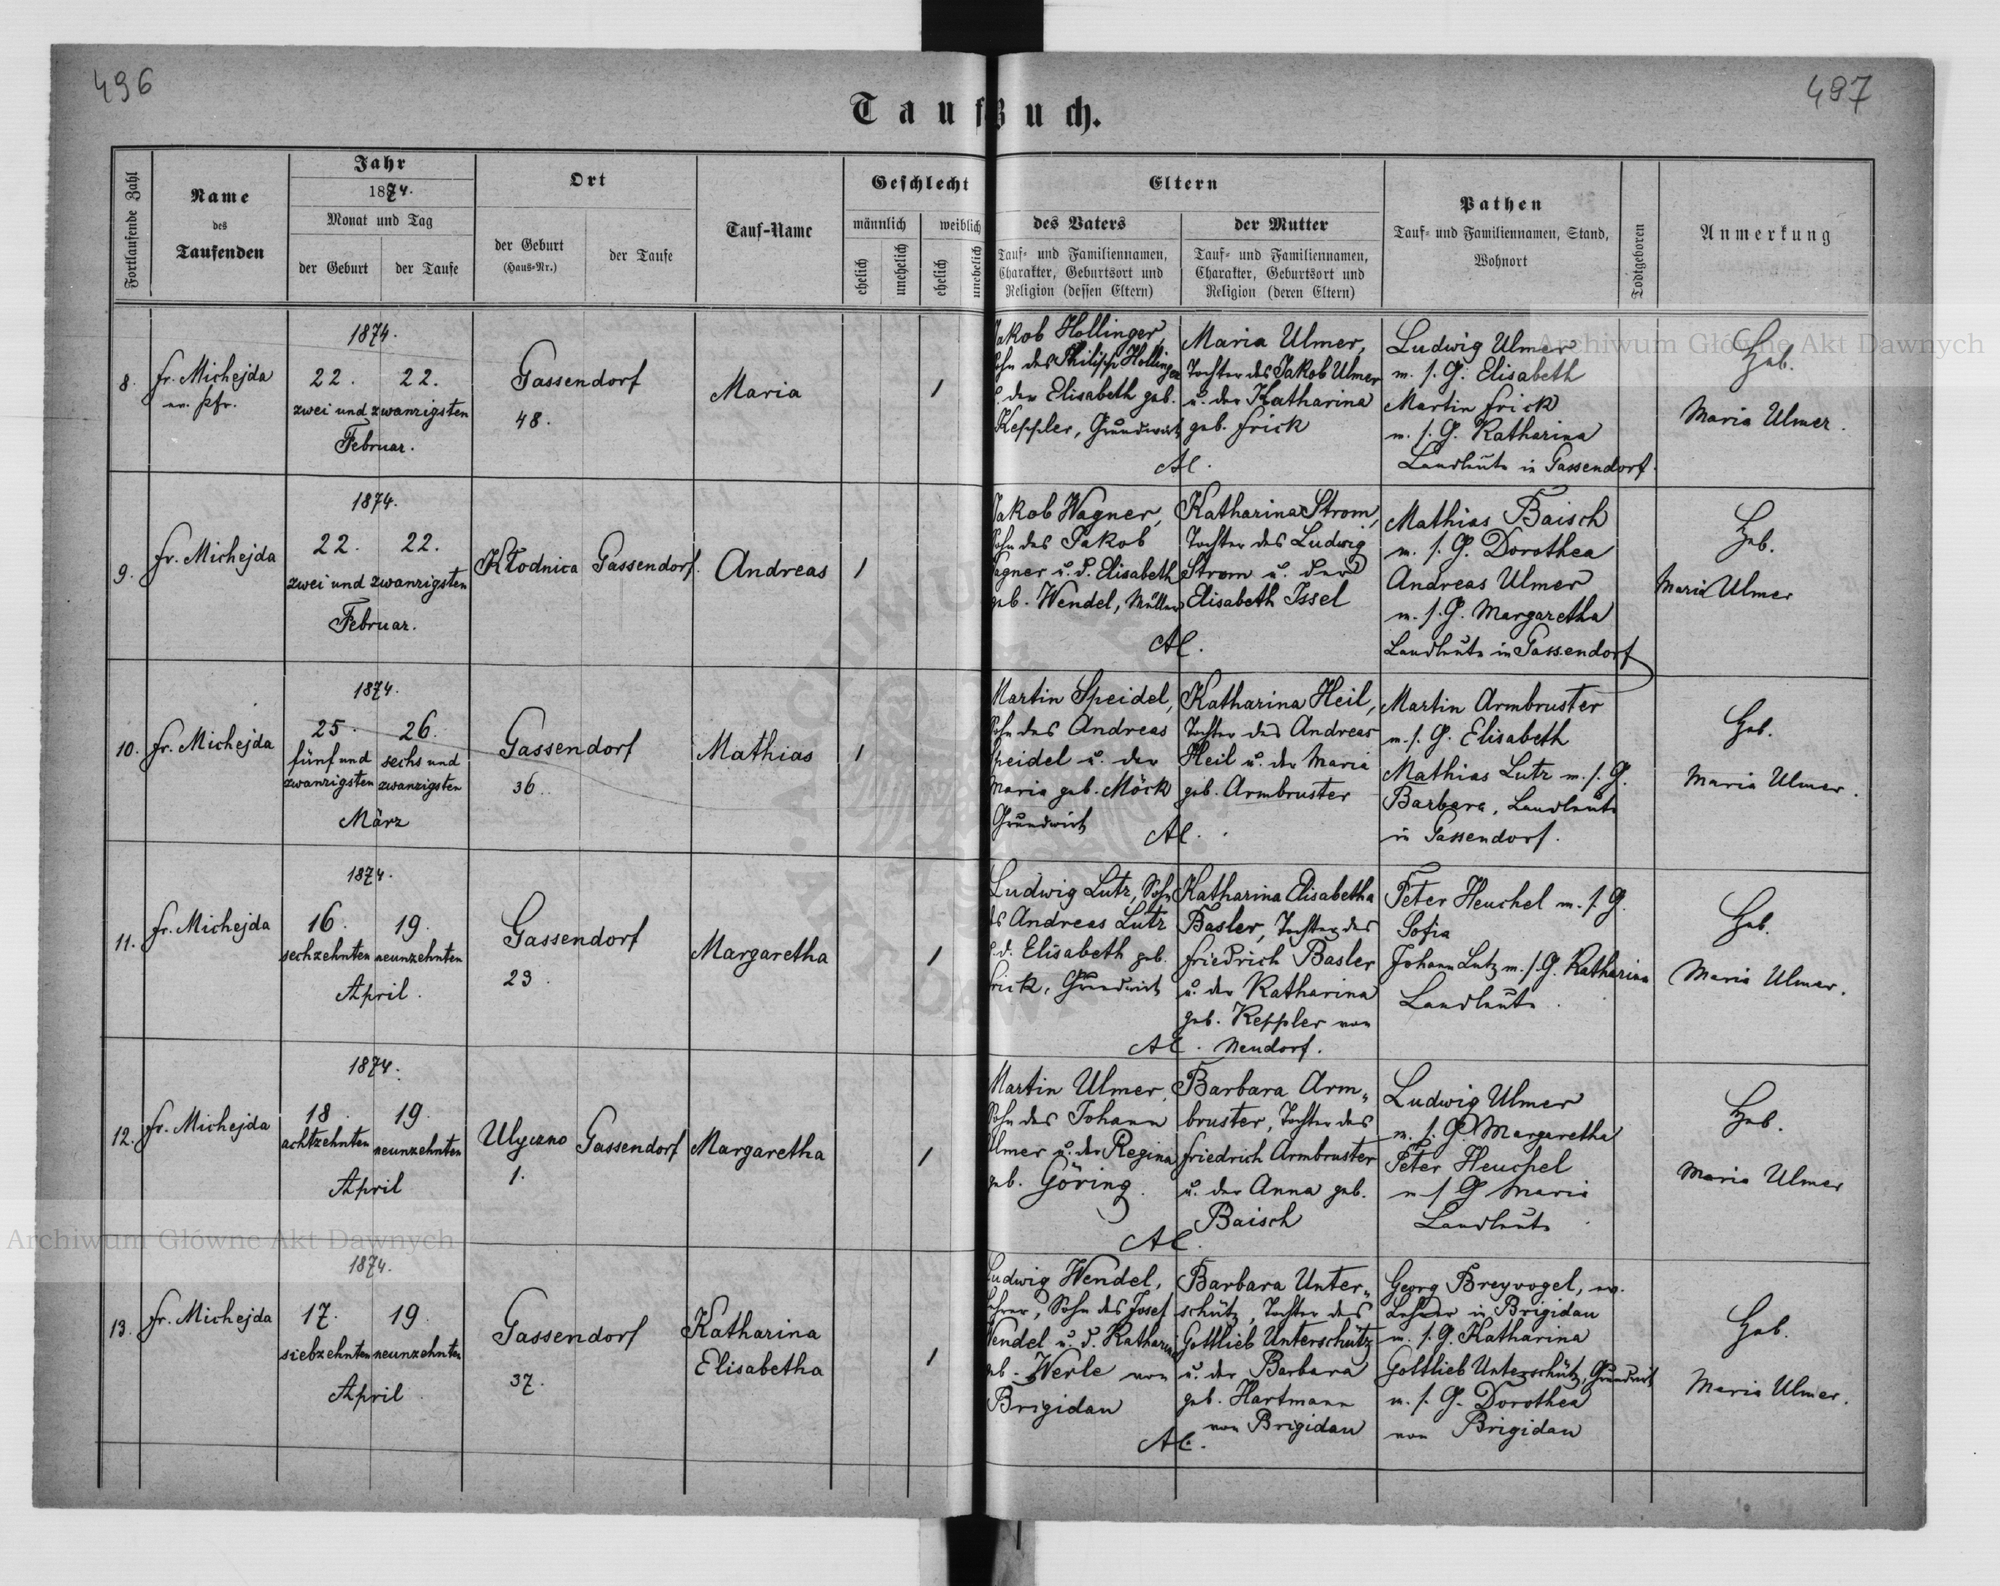 496
497
TaufBuch.
Fortlaufende Zahl
Name
des
Taufenden
Jahr
1874.
Monat und Tag
der Geburt
der Taufe
Ort
der Geburt
(Haus-Nr.)
der Taufe
Tauf-Name
Geschlecht
männlich
weiblich
ehelich
unehelich
ehelich
unehelich
Eltern
des Vaters
Tauf- und Familiennamen,
Charakter, Geburtsort und
Religion (dessen Eltern)
der Mutter
Tauf- und Familiennamen,
Charakter, Geburtsort und
Religion (deren Eltern)
Pathen
Tauf- und Familiennamen, Stand,
Wohnort
Todtgeboren
Anmerkung
8.
fr. Michejda
ev. Pfr.
1874.
22. 22.
zwei und zwanzigsten
Februar.
Gassendorf
48.
Maria
1
Jakob Hollinger,
Sohn des Philipp Hollinger
u. der Elisabeth geb.
Keppler, Grundwirt
Maria Ulmer,
Tochter des Jakob Ulmer
u. der Katharina
geb. Frick
AC.
Ludwig Ulmer
m. s. G. Elisabeth
Martin Frick
m. s. G. Katharina
Landleute in Gassendorf.
Heb.
Maria Ulmer.
9.
fr. Michejda
1874.
22. 22.
zwei und zwanzigsten
Februar.
Kłodnica
Gassendorf.
Andreas
1
Jakob Wagner,
Sohn des Jakob
Wagner u. d. Elisabeth
geb. Wendel, Müller
Katharina Strom,
Tochter des Ludwig
Strom u. der
Elisabeth Issel
AC.
Mathias Baisch
m. s. G. Dorothea
Andreas Ulmer
m. s. G. Margaretha
Landleute in Gassendorf
Heb.
Maria Ulmer
10.
fr. Michejda
1874.
25. 26.
fünf und sechs und
zwanzigsten zwanzigsten
März
Gassendorf
36.
Mathias
1
Martin Speidel,
Sohn des Andreas
Speidel u. der
Maria geb. Möck
Grundwirt
Katharina Heil,
Tochter des Andreas
Heil u. der Maria
geb. Armbruster
AC.
Martin Armbruster
m. s. G. Elisabeth
Mathias Lutz m. s. G.
Barbara, Landleute
in Gassendorf.
Heb.
Maria Ulmer.
11.
fr. Michejda
1874.
16. 19.
sechzehnten neunzehnten
April.
Gassendorf
23.
Margaretha
1
Ludwig Lutz, Sohn
des Andreas Lutz
u. d. Elisabeth geb.
Frick, Grundwirt
Katharina Elisabetha
Basler, Tochter des
Friedrich Basler
u. der Katharina
geb. Keppler von
AC. Neudorf.
Peter Heuchel m. s. G.
Sofia
Johann Lutz m. s. G. Katharina
Landleute.
Heb.
Maria Ulmer.
12.
fr. Michejda
1874.
18. 19.
achtzehnten neunzehnten
April
Ulyczno
1.
Gassendorf
Margaretha
1
Martin Ulmer,
Sohn des Johann
Ulmer u. der Regina
geb. Göring.
Barbara Arm-
bruster, Tochter des
Friedrich Armbruster
u. der Anna geb.
Baisch
AC.
Ludwig Ulmer
m. s. G. Margaretha
Peter Heuchel
m. s. G. Maria
Landleute
Heb.
Maria Ulmer
13.
fr. Michejda
1874.
17. 19.
siebzehnten neunzehnten
April
Gassendorf
37.
Katharina
Elisabetha
1
Ludwig Wendel,
Lehrer, Sohn des Josef
Wendel u. d. Katharina
geb. Werle von
Brigidau
Barbara Unter-
schütz, Tochter des
Gottlieb Unterschütz
u. der Barbara
geb. Hartmann
von Brigidau
AC.
Georg Breyvogel, ev.
Lehrer in Brigidau
m. s. G. Katharina
Gottlieb Unterschütz, Grundwirt
m. s. G. Dorothea
von Brigidau
Heb.
Maria Ulmer.
Archiwum Główne Akt Dawnych
Archiwum Główne Akt Dawnych